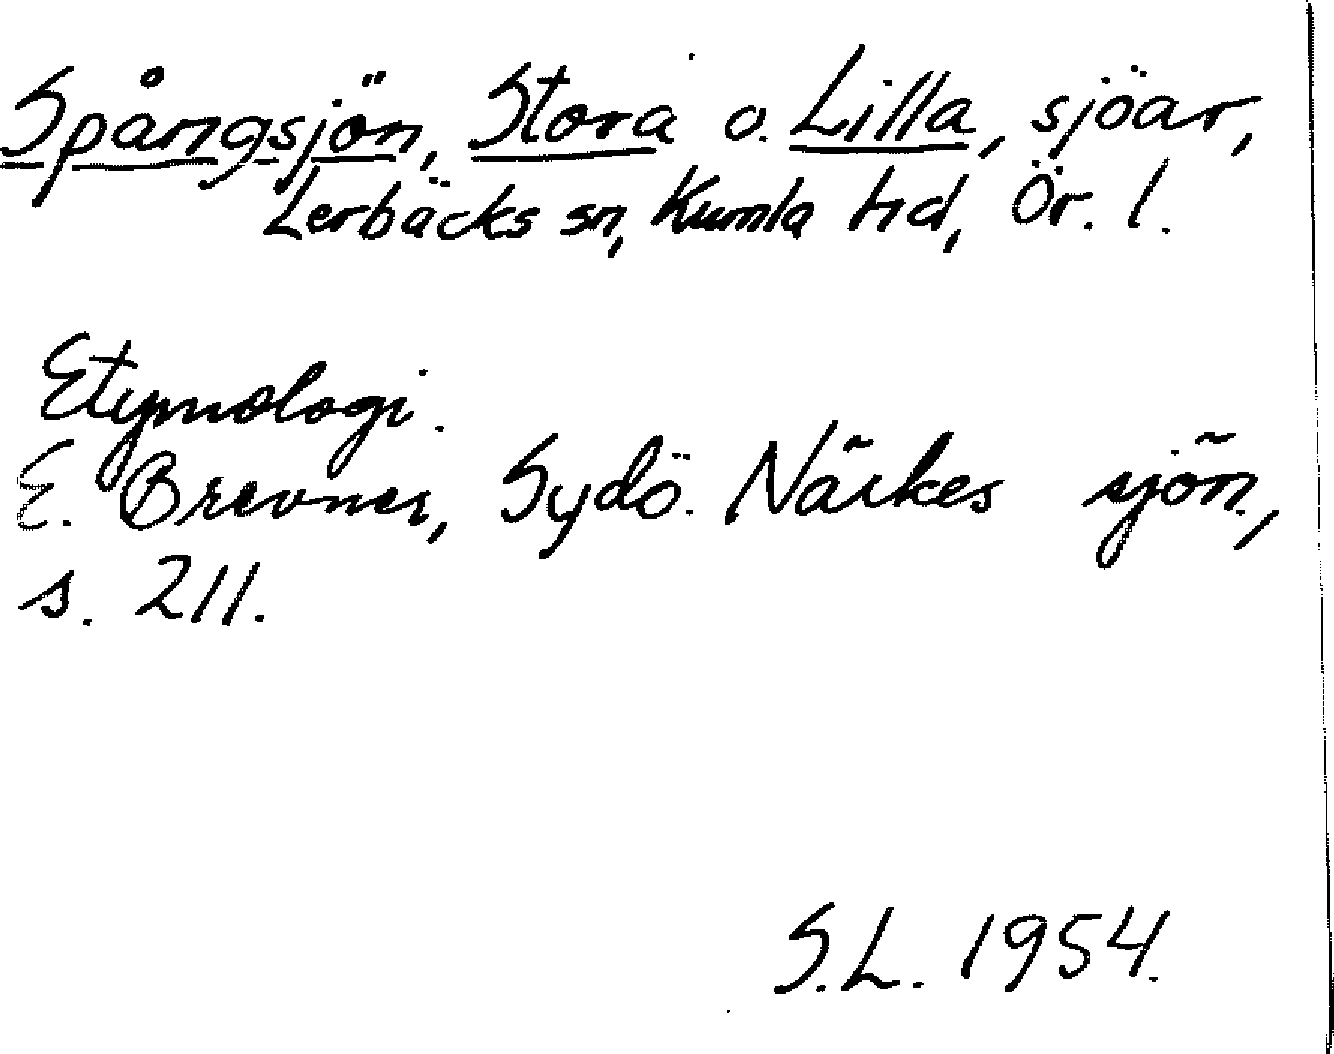 Spångsjön, Stora o. Lilla, sjöar,
Lerbäcks sn, Kumla hd, Ör. l.
Etymologi.
E. Brevner, Sydö. Närkes sjön.,
s. 211.
S.L. 1954.